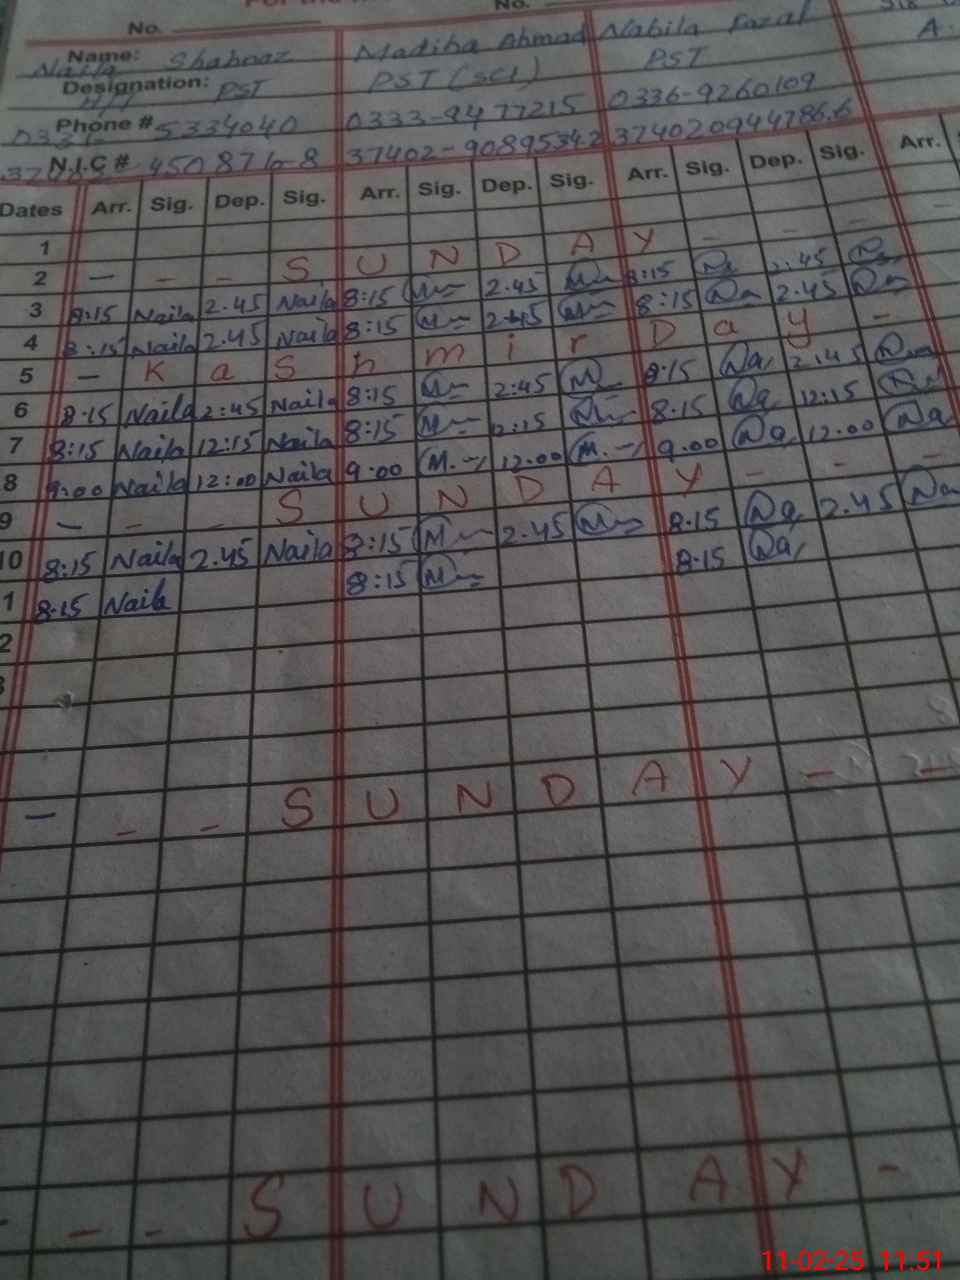 No. No.
Name: Naila Shahnaz Madiha Ahmad Nabila Fazal
Designation: PST PST (SCI) PST
Phone # 5334040 0333-9477215 0336-9260109
N.I.C # 450876-8 37402-9089534.2 374020944786.6
Dates Arr. Sig. Dep. Sig. Arr. Sig. Dep. Sig. Arr. Sig. Dep. Sig. Arr.
1
2 — — — S U N D A Y — — — —
3 8:15 Naila 2.45 Naila 8:15 M 2.45 M 8:15 Na 2.45 Na
4 8:15 Naila 2.45 Naila 8:15 M 2.45 M 8:15 Na 2.45 Na
5 — K a S h m i r D a y —
6 8.15 Naila 2:45 Naila 8:15 M 2:45 M 8.15 Na 2:45 Na
7 8:15 Naila 12:15 Naila 8:15 M 12:15 M 8.15 Na 12:15 Na
8 9:00 Naila 12:00 Naila 9:00 M. 12.00 M. 9.00 Na 12.00 Na
9 — — — S U N D A Y — — —
10 8:15 Naila 2.45 Naila 8:15 M 2.45 M 8.15 Na 2.45 Na
1 8.15 Naila 8:15 M 8.15 Na
2
3
— — — S U N D A Y — —
— — — S U N D A Y —
11-02-25 11.51